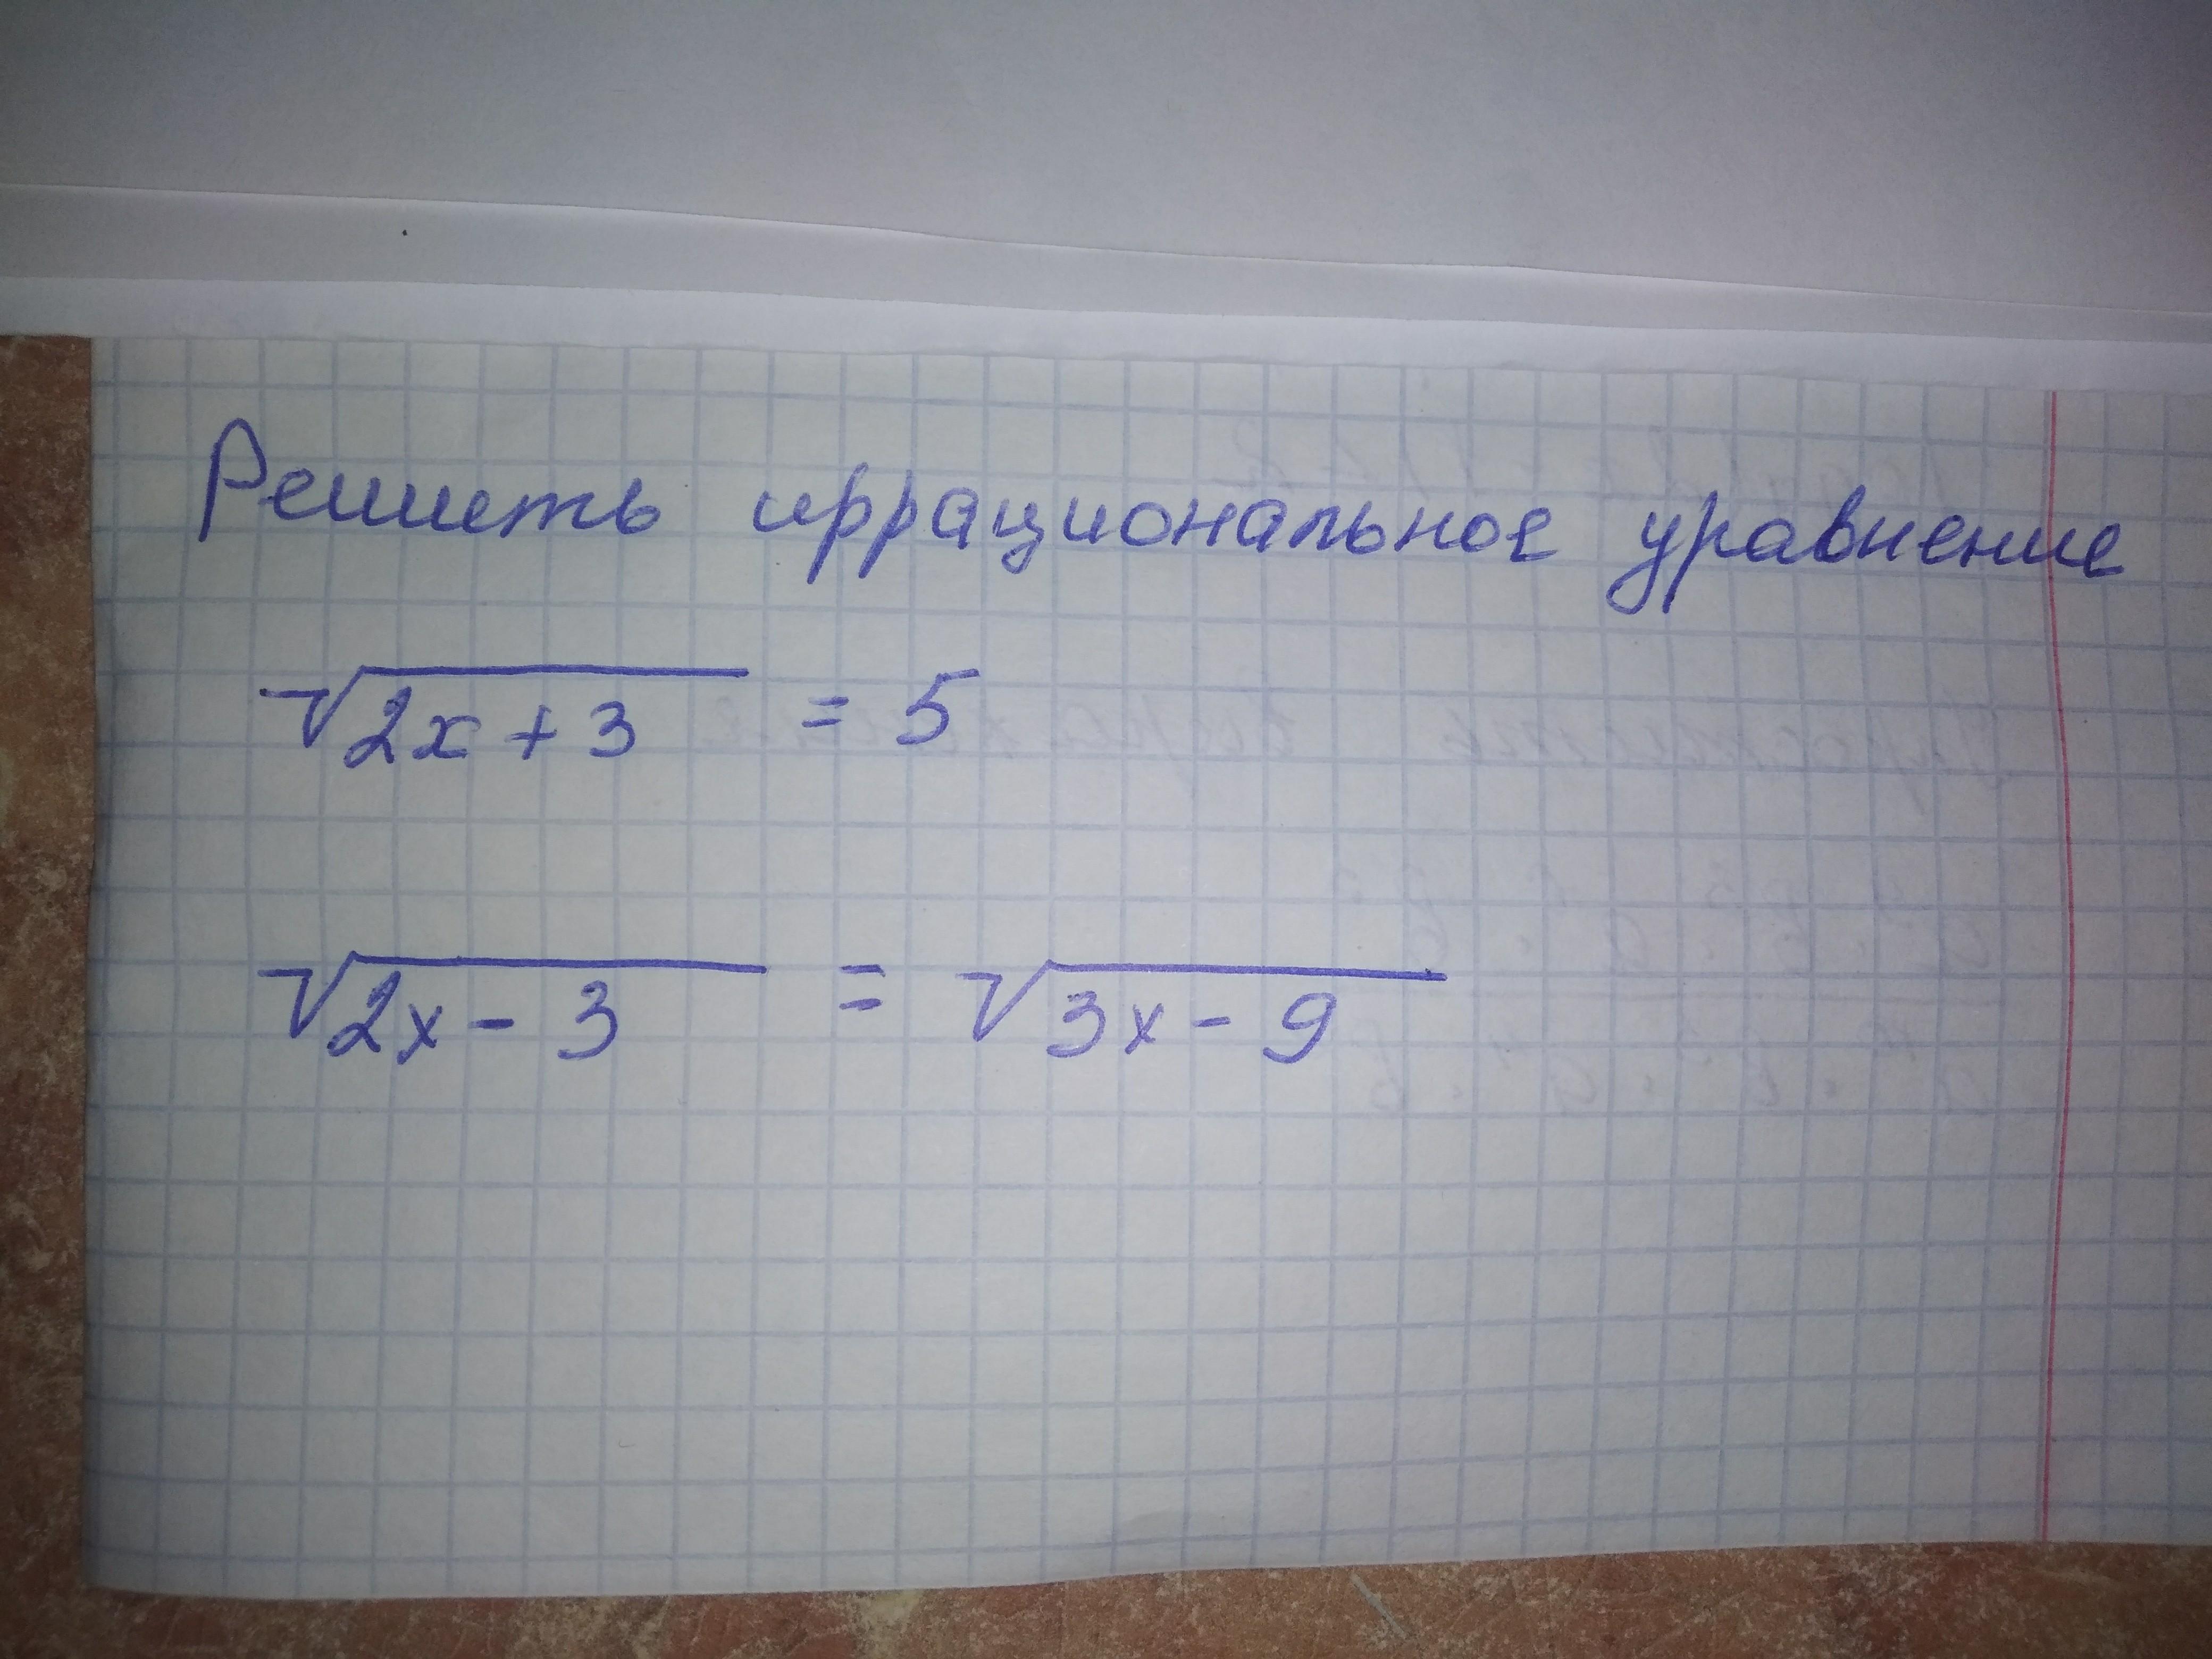 Решить иррациональное уравнение
√2x + 3 = 5
√2x - 3 = √3x - 9